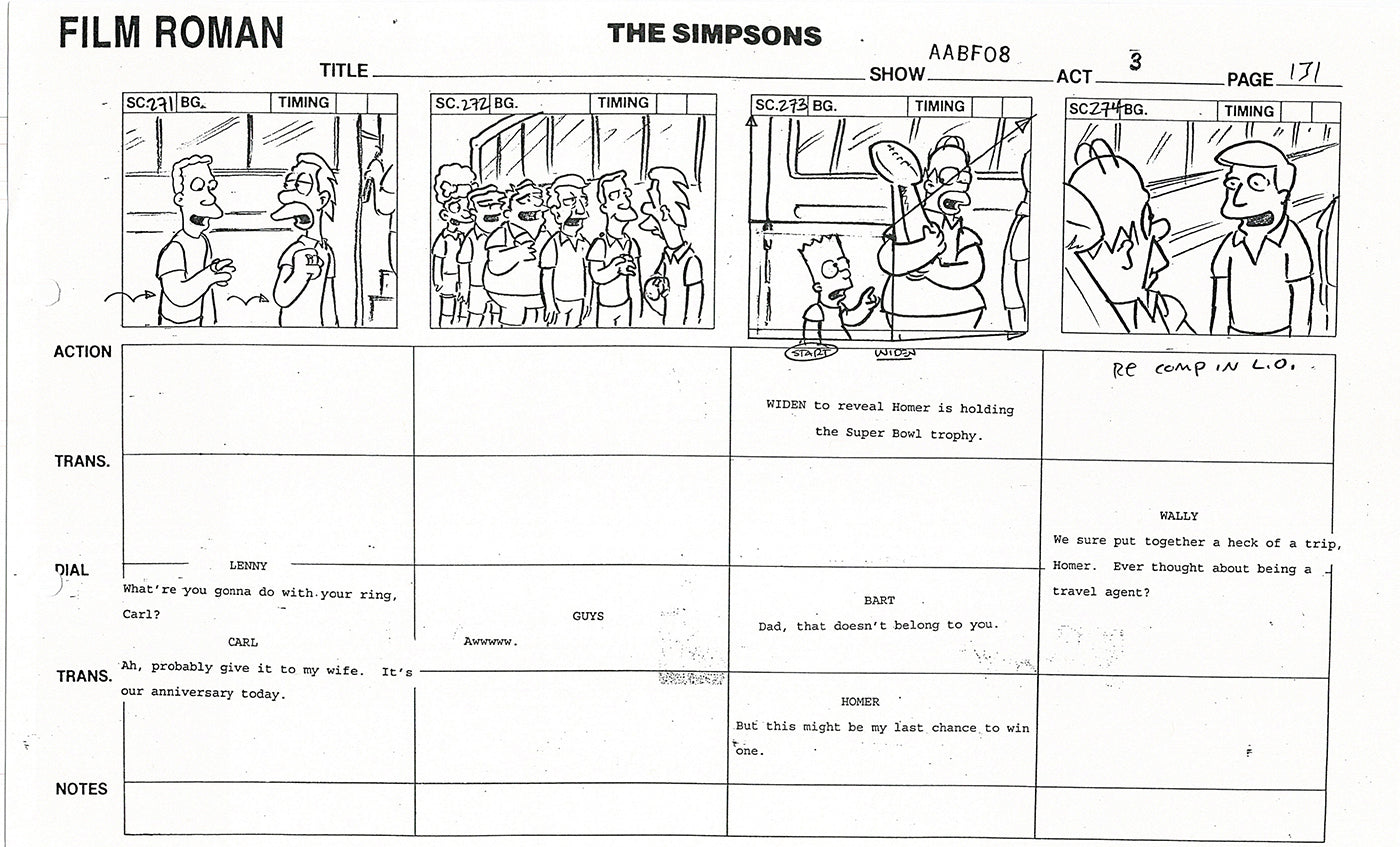 FILM ROMAN
THE SIMPSONS
TITLE SHOW AABF08 ACT 3 PAGE 131
SC.271 BG. TIMING
SC.272 BG. TIMING
SC.273 BG. TIMING
SC.274 BG. TIMING
START WIDEN
ACTION
RE COMP IN L.O.
WIDEN to reveal Homer is holding
the Super Bowl trophy.
TRANS.
DIAL
LENNY
What're you gonna do with your ring,
Carl?
CARL
Ah, probably give it to my wife. It's
our anniversary today.
GUYS
Awwwww.
BART
Dad, that doesn't belong to you.
HOMER
But this might be my last chance to win
one.
WALLY
We sure put together a heck of a trip,
Homer. Ever thought about being a
travel agent?
TRANS.
NOTES